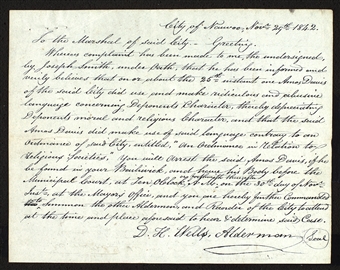 City of Nauvoo, Nov. 29th 1842.
To the Marshal of said City. Greeting.
Whereas complaint has been made to me the undersigned,
by Joseph Smith, under oath, that he has been informed and
verily believes that on or about the 25th instant one Amos Davis
of the said City did use and make ridiculous and abusive
language concerning Deponents Character, thereby depreciating
Deponents moral and religious Character, and that the said
Amos Davis did make use of said language contrary to an
Ordinance of said City, entitled, "An Ordinance in Relation to
Religious Societies. You will arrest the said Amos Davis, if he
be found in your Bailiwick, and have his Body before the
Municipal Court, at Ten O'Clock, A.M. on the 30th day of Nov.
Inst., at the Mayor's Office, and you are hereby further Commanded
to Summon the other Aldermen, and Recorder of the City
at the time and place aforesaid to hear & determine said Case.
D. H. Wells, Alderman
Seal